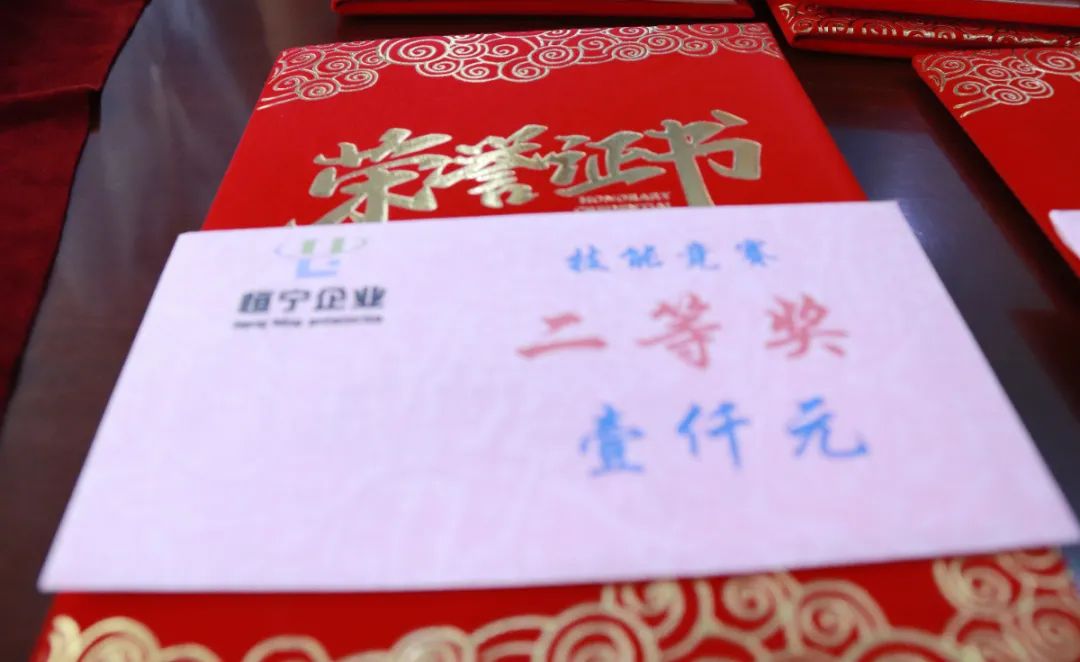 荣誉证书
HONORARY
技能竞赛
二等奖
壹仟元
恒宁企业